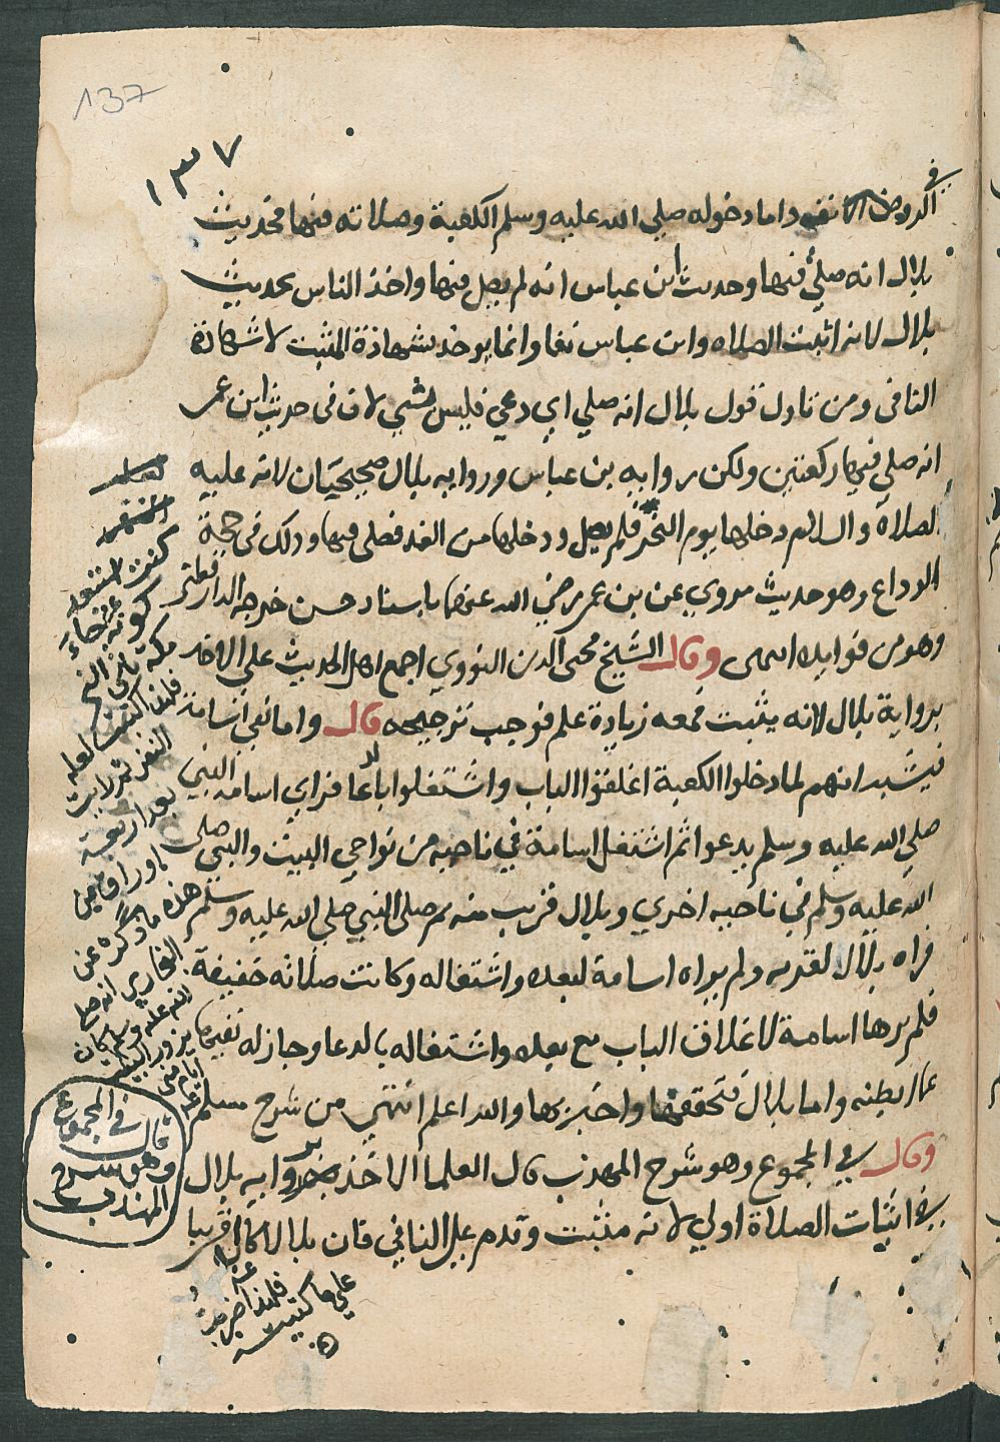 137
١٣٧
في
الروض الانف واما دخوله صلي الله عليه وسلم الكعبة وصلاته فيها فحديث
بلال انه صلي فيها وحديث ابن عباس انه لم يصل فيها واخذ الناس بحديث
بلال لانه اثبت الصلاه وابن عباس نفا وانما يوخذ بشهادة المثبت لا شهادة
النافي ومن تاول قول بلال انه صلي اي دعي فليس بشي لان في حديث ابن عمر
انه صلي فيها ركعتين ولكن روايه بن عباس وروايه بلال صحيحتان لانه عليه
الصلاة والسلام دخلها يوم النحر فلم يصل ودخلها من الغد فصلي فيها وذلك في حجة
الوداع وهو حديث مروي عن بن عمر رضي الله عنهما باسناد حسن خرجه الدارقطني
وهو من فوايده انتهى وقال الشيخ محي الدين النووي اجمع اهل الحديث علي الاخذ
برواية بلال لانه يثبت فمعه زيادة علم فوجب ترجيحه قال واما نفي اسامة
فيشبه انهم لما دخلوا الكعبة اغلقوا الباب واشتغلوا بالدعا فراي اسامه النبي
صلي الله عليه وسلم يدعوا ثم اشتغل اسامة في ناحيه من نواحي البيت والنبي صلى
الله عليه وسلم في ناحيه اخري وبلال قريب منه ثم صلى النبي صلي الله عليه وسلم
فراه بلال لقربه ولم يراه اسامة لبعده واشتغاله وكانت صلاته خفيفة
فلم يرها اسامة لاغلاق الباب مع بعده واشتغاله بالدعا وجاز له نفيها
عملا بظنه واما بلال فتحققها واخبر بها والله اعلم انتهى من شرح مسلم
وقال في المجموع وهو شرح المهذب قال العلما الاخذ بروايه بلال
في اثبات الصلاة اولي لانه مثبت وقدم علي النافي فان بلالا كان قريبا
كنت
كونه جاء
مكة
فلهذا كتبت
بعد اربعة
اوراق من
هذه ما ذكره عن
البخاري انه صلي
الله عليه وسلم كان
يزور البيت
ايام منى
في المجموع
قال
وهو شرح
المهذب
فلهذا اضربت
علي ما كتبته